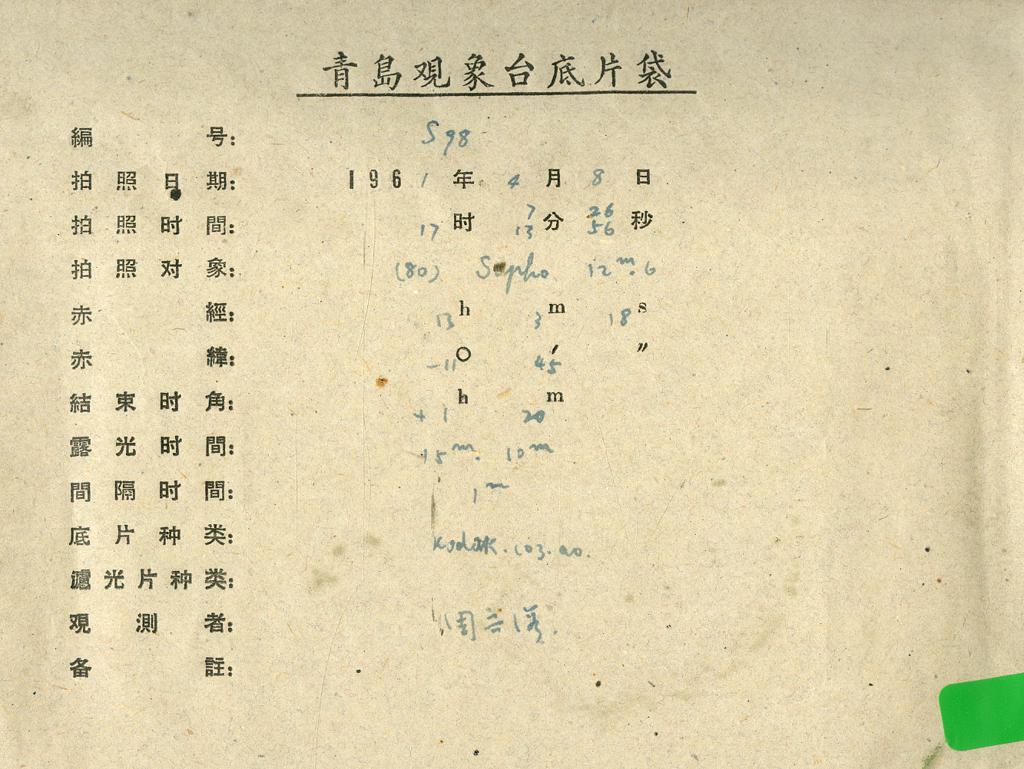 青島观象台底片袋
編 号: S98
拍照日期: 1961年4月8日
7 26
拍照时間: 17时13分56秒
拍照对象: (80) Sapho 12ᵐ.6
赤 經: 13h 3m 18s
赤 緯: -11° 45′ ″
結束时角: +1h 20m
露光时間: 15ᵐ. 10ᵐ
間隔时間: 1ᵐ
底片种类: Kodak.103.ao.
濾光片种类:
观測者: 周
备 註: